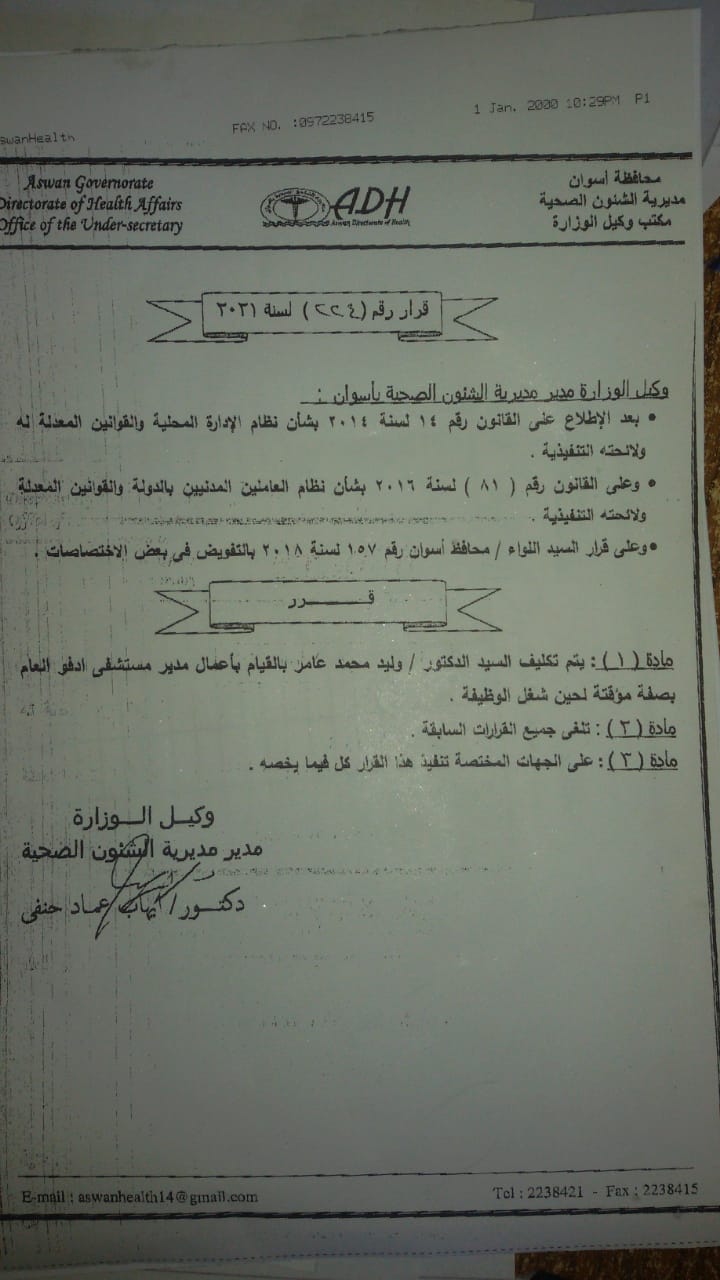 swanHealth FAX NO. :0972238415 1 Jan. 2000 10:29PM P1
Aswan Governorate
Directorate of Health Affairs
Office of the Under-secretary
ADH
Aswan Directorate of Health
محافظة أسوان
مديرية الشئون الصحية
مكتب وكيل الوزارة
قرار رقم ( ٢٢٤ ) لسنة ٢٠٢١
وكيل الوزارة مدير مديرية الشئون الصحية بأسوان :
• بعد الإطلاع على القانون رقم ١٤ لسنة ٢٠١٤ بشأن نظام الإدارة المحلية والقوانين المعدلة له
ولائحته التنفيذية .
• وعلى القانون رقم ( ٨١ ) لسنة ٢٠١٦ بشأن نظام العاملين المدنيين بالدولة والقوانين المعدلة
ولائحته التنفيذية .
• وعلى قرار السيد اللواء / محافظ أسوان رقم ١٥٧ لسنة ٢٠١٨ بالتفويض فى بعض الاختصاصات .
قـــــــرر
مادة ( ١ ) : يتم تكليف السيد الدكتور / وليد محمد عامر بالقيام بأعمال مدير مستشفى ادفو العام
بصفة مؤقتة لحين شغل الوظيفة .
مادة ( ٢ ) : تلغى جميع القرارات السابقة .
مادة ( ٣ ) : على الجهات المختصة تنفيذ هذا القرار كل فيما يخصه .
وكيـل الـــوزارة
مدير مديرية الشئون الصحية
دكتـــور / ايهاب عماد حنفى
E-mail : aswanhealth14@gmail.com Tel : 2238421 - Fax : 2238415